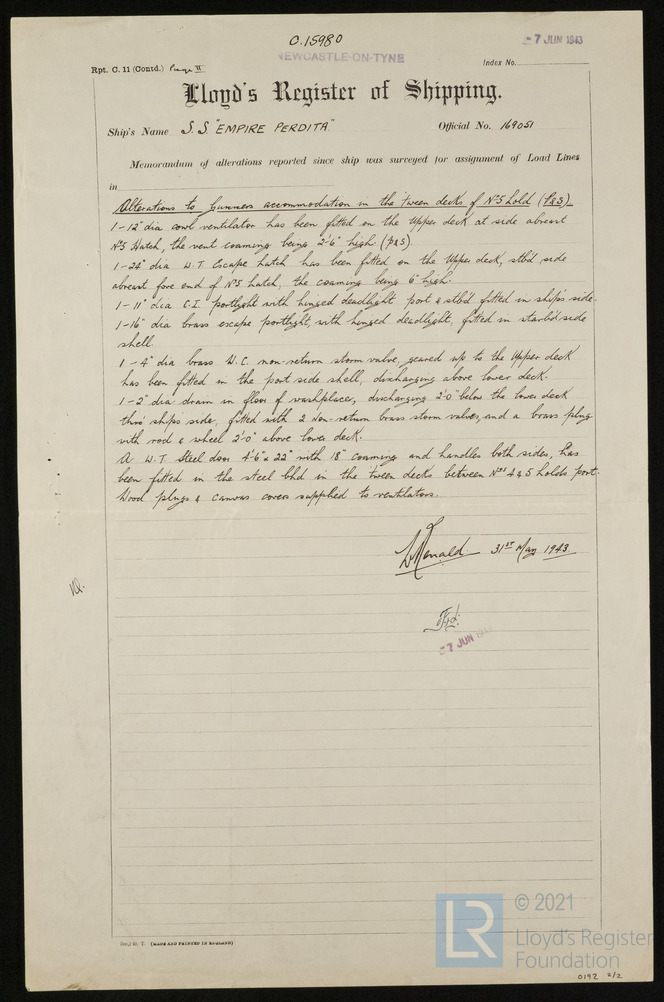 C.15980
NEWCASTLE-ON-TYNE
-7 JUN 1943
Rpt. C. 11 (Contd.) Page II
Index No.
Lloyd's Register of Shipping.
Ship's Name S.S. "EMPIRE PERDITA"
Official No. 169051
Memorandum of alterations reported since ship was surveyed for assignment of Load Lines
in
Alterations to Gunners accommodation in the 'tween decks of Nº5 hold (P&S)
1-12" dia cowl ventilator has been fitted on the Upper deck at side abreast
Nº5 Hatch, the vent coaming being 2'6" high. (P&S).
1-24" dia W.T. Escape hatch has been fitted on the Upper deck, stbd side
abreast fore end of Nº5 hatch, the coaming being 6" high.
1-11" dia C.I. portlight with hinged deadlight port & stbd fitted in ship's side.
1-16" dia brass escape portlight, with hinged deadlight, fitted in starb'd side
shell.
1-4" dia brass W.C. non-return storm valve, geared up to the Upper deck
has been fitted in the port side shell, discharging above lower deck.
1-2" dia drain in floor of washplace, discharging 2'-0" below the lower deck
thro' ships side, fitted with 2 non-return brass storm valves, and a brass plug
with rod & wheel 2'-0" above lower deck.
A W.T Steel door 4'-6" x 22" with 18" coaming and handles both sides, has
been fitted in the steel bhd in the 'tween decks between Nºs 4 & 5 holds port
Wood plugs & canvas covers supplied to ventilators.
31ST May 1943.
-7 JUN 194
T. (MADE AND PRINTED IN ENGLAND)
LR
© 2021
Lloyd's Register
Foundation
0192 2/2